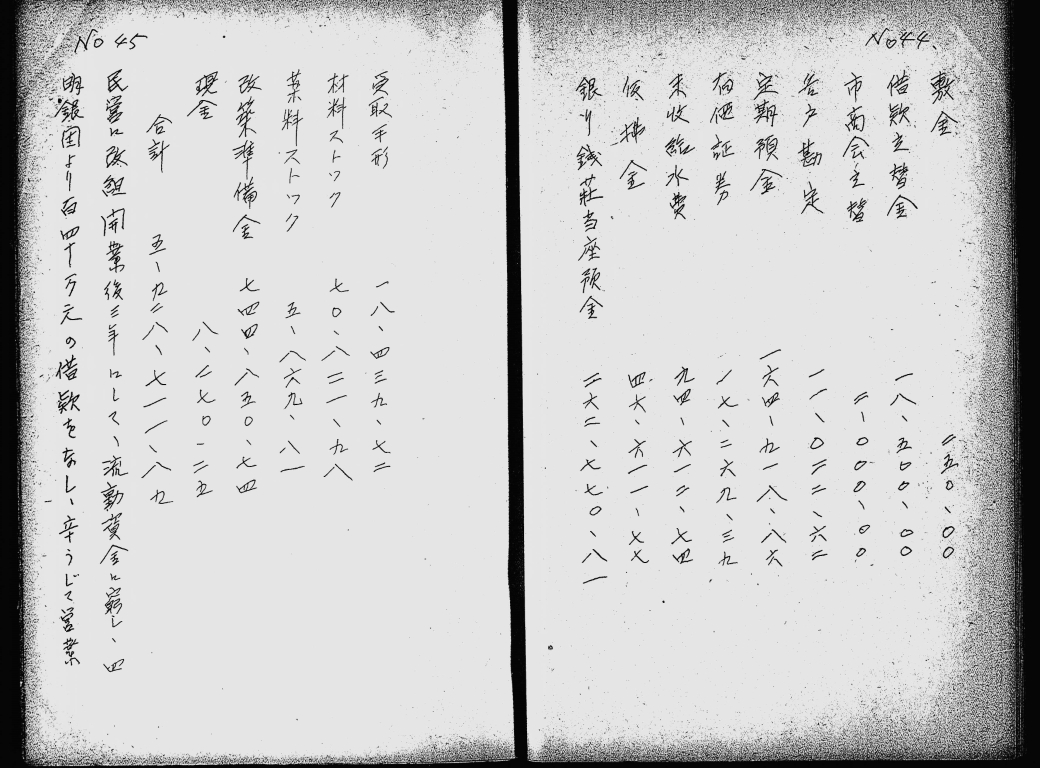 No 44.
敷金 二五〇、〇〇
借款立替金 一八、五〇〇、〇〇
市商会立替 二、〇〇〇、〇〇
各戸勘定 一一、〇二二、六二
定期預金 一六四、九一八、八六
有価証券 一七、二六九、三九
未收給水費 九四、六一二、七四
仮拂金 四六、六一一、七七
銀行錢莊当座預金 二六二、七七〇、八一
No 45
受取手形 一八、四三九、七二
材料ストック 七〇、八二一、九八
薬料ストック 五、八六九、八一
改築準備金 七四四、八五〇、七四
現金 八、二七〇、二五
合計 五、九二八、七一一、八九
民営に改組開業後三年にして、流動資金に窮し、四
明銀団より百四十万元の借款をなし、辛うじて営業